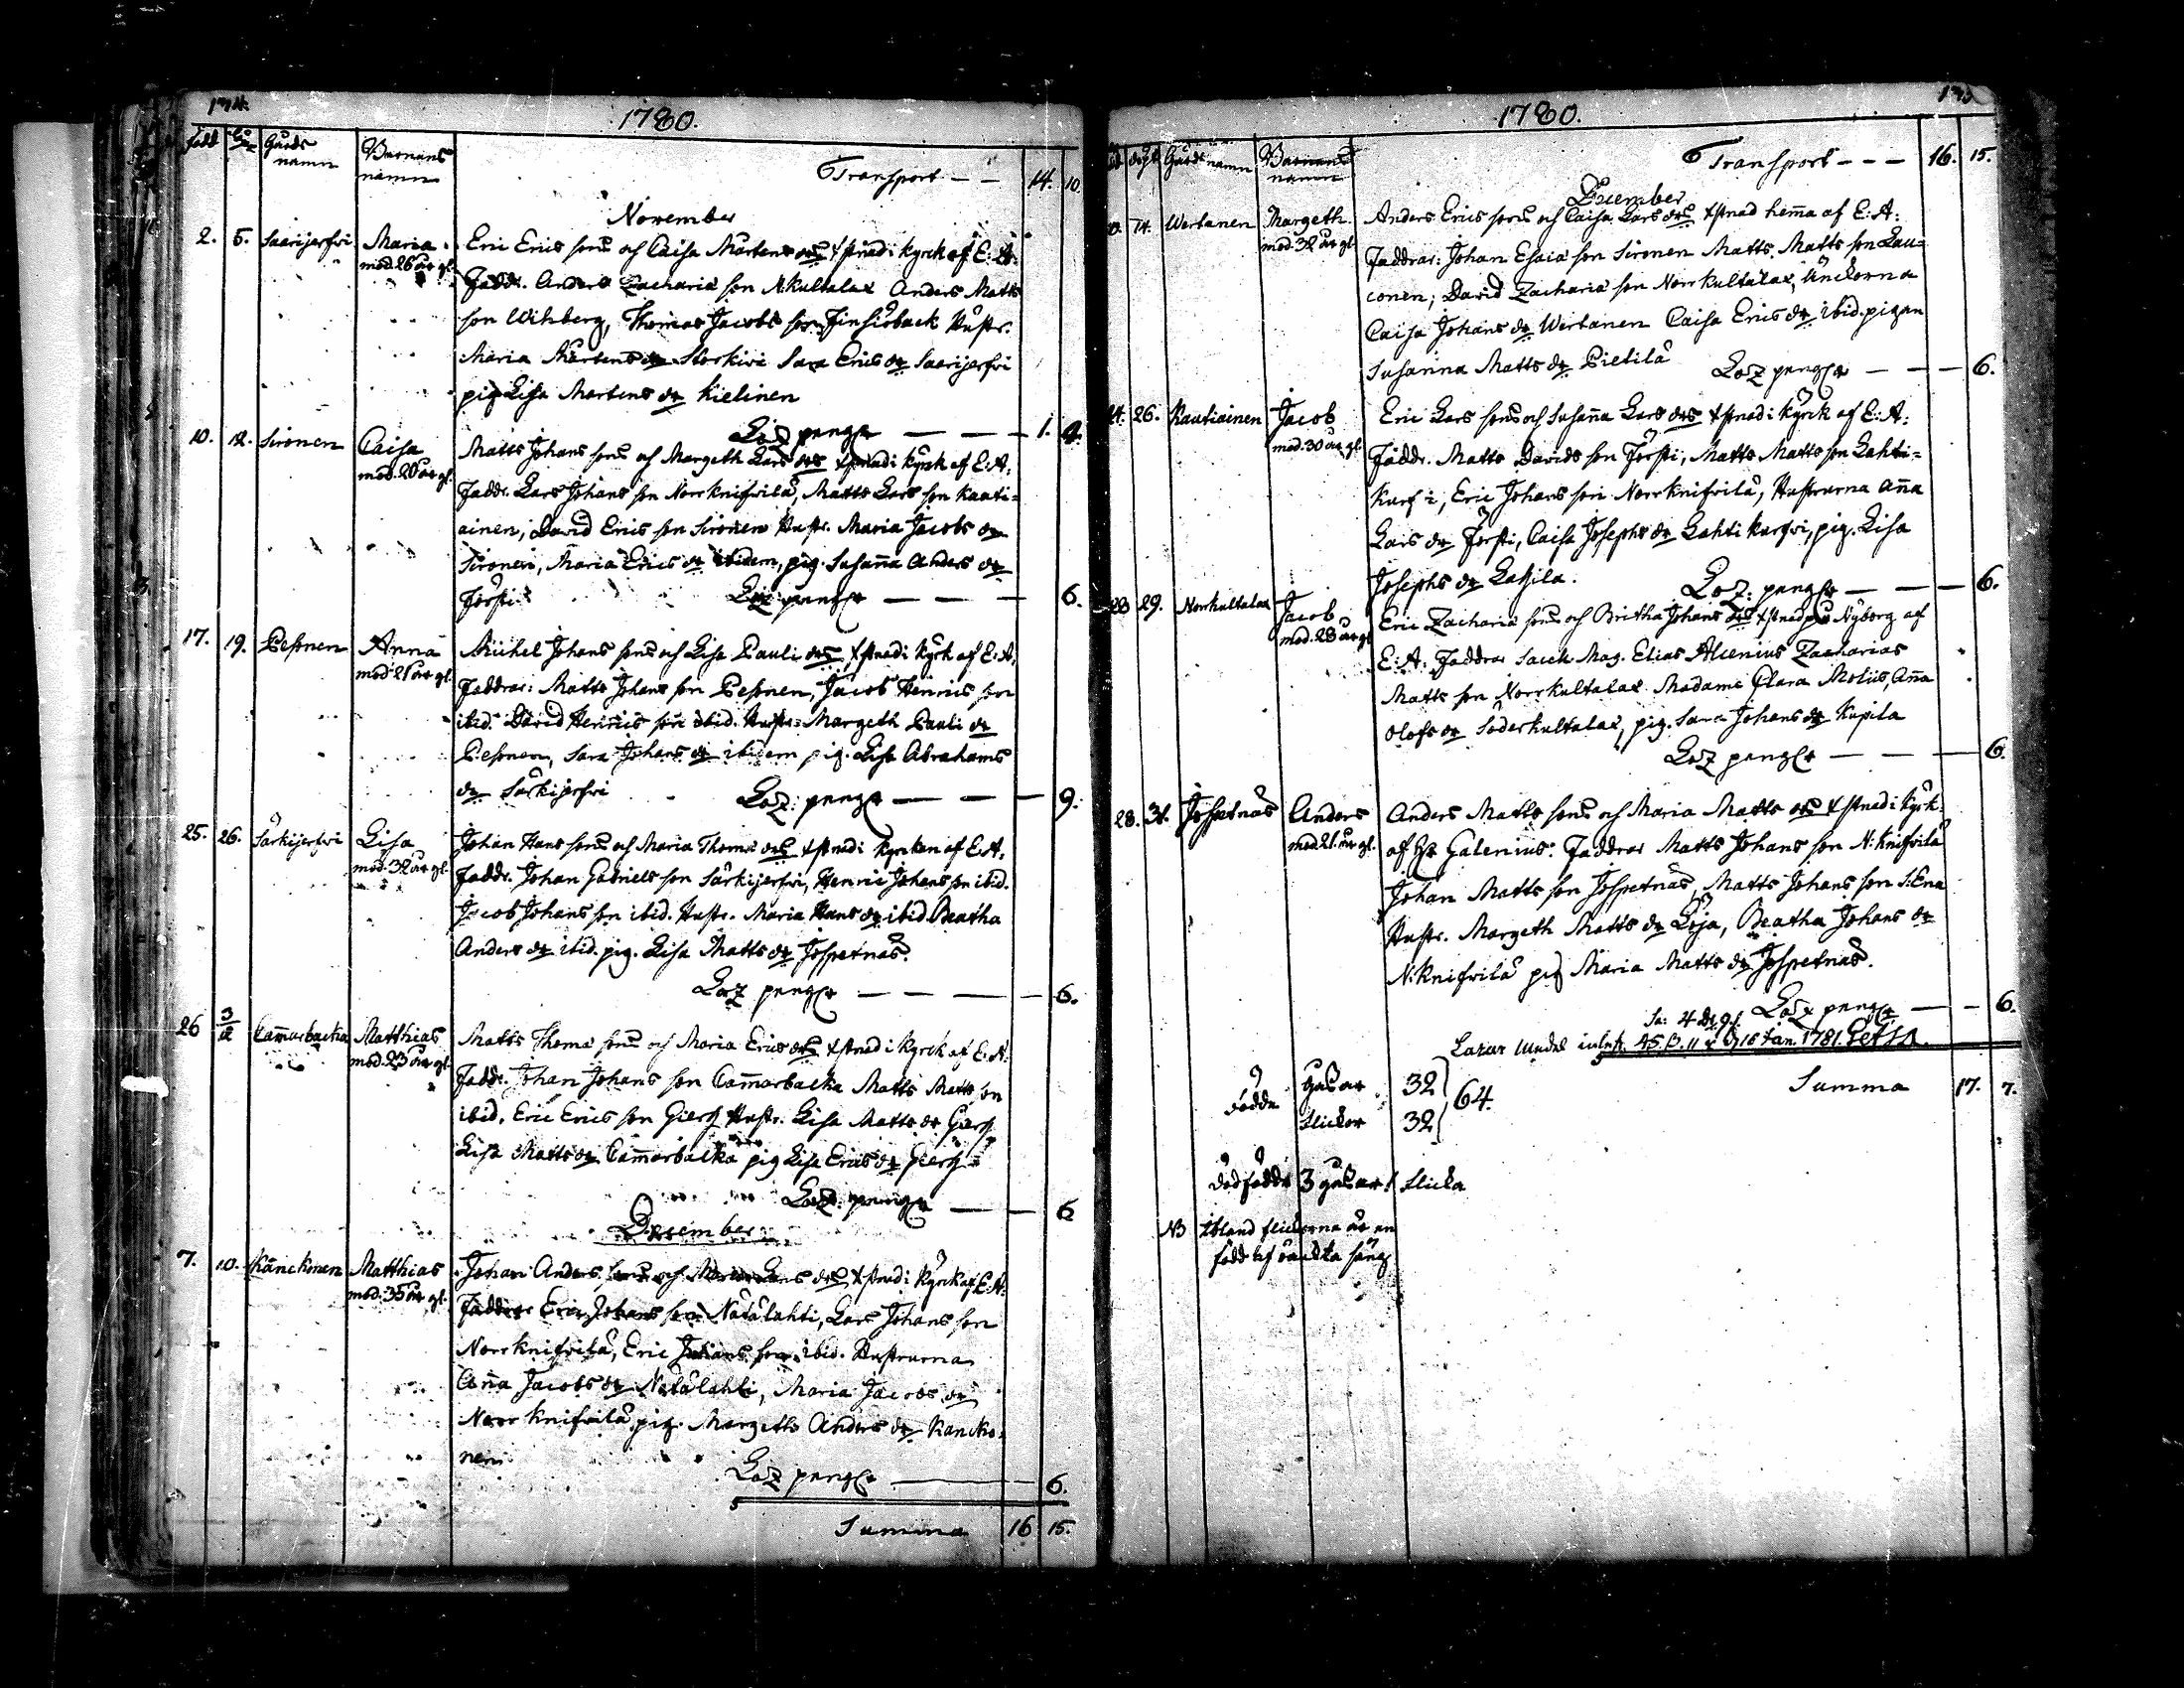 174.
1780.
född
Gårds namn
Barnens namn
Transport — — 14. 10.
November
2. 5. Saarijerfvi Maria Eric Erics sons och Caisa Mårtens drs xstnad i kyrck af E: A:
mod. 26 år gl. Faddr. Anders Zachariæ son N. kultalax Anders Matts
son Wihberg, Thomas Jacobs son Finsiöback Hustr.
Maria Mårtens dr Storkivi Sara Erics dr Saarijerfvi
pig. Lisa Mårtens dr Kielinen
Lösz peng:r — — — 1. 4.
10. 12. Sironen Caisa Matts Johans sons och Margeth Lars drs xstnad i kyrck af E: A:
mod. 20 år gl. Faddr. Lars Johans son Norrknifvilä, Matts Lars son Kauti-
ainen, David Erics son Sironen Hustr. Maria Jacobs dr
Sironen, Maria Erics dr ibidem, pig. Susanna Anders dr
Försti. Lösz peng:r — — — 6.
17. 19. Pesonen Anna Michel Johans sons och Lisa Pauli drs xstnad i kyrk af E: A:
mod 21 år gl. Faddrar: Matts Johans son Pesonen, Jacob Henrics son
ibid. David Henrics son ibid. Hustr: Margeth Pauli dr
Pesonen, Sara Johans dr ibidem pig. Lisa Abrahams
dr Särkijerfvi Lösz: peng:r — — — 9.
25. 26. Särkijerfvi Lisa Johan Hans sons och Maria Thomæ drs xstnad i kyrkan af E: A:
mod. 32 år gl. Faddr. Johan Gabriels son Särkijerfvi, Henric Johans son ibid.
Jacob Johans son ibid. Hustr. Maria Hans dr ibid. Beatha
Anders dr ibid. pig. Lisa Matts dr Jospetnäs.
Lösz peng:r — — — 6.
26 3/12 Cammarbacka Matthias Matts Thomæ sons och Maria Erics drs xstnad i kyrck af E: A:
mod. 23 år gl. Faddr. Johan Johans son Cammarbacka Matts Matts son
ibid. Eric Erics son Giers Hustr. Lisa Matts dr Giers
Lisa Matts dr Cammarbacka pig Lisa Erics dr Giers
Lösz: peng:r — — 6
December
7. 10. Känckönen Matthias Johan Anders sons och Maria Lars drs xstnad i kyrck af E: A:
mod. 35 år gl. Faddrar Eric Johans son Nätälahti, Lars Johans son
Norrknifvilä, Eric Johans son ibid. Hustrurna
Anna Jacobs dr Nätälahti, Maria Jacobs dr
Norrknifvilä pig. Margeth Anders dr Känckö-
nen.
Lösz peng:r — 6.
Summa 16 15.
1780.
döpt Gårds namn Barnens namn
Transport — — — 16. 15.
December
14. Wertanen Margeth. Anders Erics sons och Caisa Lars drs xstnad hemma af E: A:
mod. 32 år gl. Faddrar: Johan Esaiæ son Sironen Matts. Matts son Lau-
conen; David Zachariæ son Norrkultalax, Änckorna
Caisa Johans dr Wertanen Caisa Erics dr ibid. pigan
Susanna Matts dr Pietilä Lösz peng:r — — — 6.
14. 26. Kautiainen Jacob Eric Lars sons och Susanna Lars drs xstnad i kyrck af E: A:
mod. 30 år gl. Faddr. Matts Davids son Försti, Matts Matts son Lahti-
kurfvi, Eric Johans son Norrknifvilä, Hustrurna Anna
Lars dr Försti, Caisa Josephs dr Lahti kurfvi, pig. Lisa
Josephs dr Latzila. Lösz: peng:r — — — 6.
23 29. Norrkultalax Jacob Eric Zachariæ sons och Britha Johans drs xstnad på Nyborg af
mod. 28 år gl E: A: Faddrar Sacell. Mag. Elias Alcenius Zacharias
Matts son Norrkultalax Madame Clara Moliis, Anna
Olofs dr Söderkultalax, pig. Sara Johans dr Kupila
Lösz peng:r — — — 6.
28. 31. Jospetnäs Anders Anders Matts sons och Maria Matts drs xstnad i kyrk.
mod 21. år gl. af Hr Galenius. Faddrar Matts Johans son N: Knifvilä
Johan Matts son Jospetnäs, Matts Johans son S: Ena
Hustr. Margeth Matts dr Löja, Beatha Johans dr
N: Knifvilä pig Maria Matts dr Jospetnäs.
Lösz peng:r — — 6.
16 Jan. 1781.
Summa 17. 7.
Födde Gåsar 32
flickor 32 } 64.
Dödfödde 3 gåsar 1 flicka
NB Ibland flickorna är en
född af oäckta säng